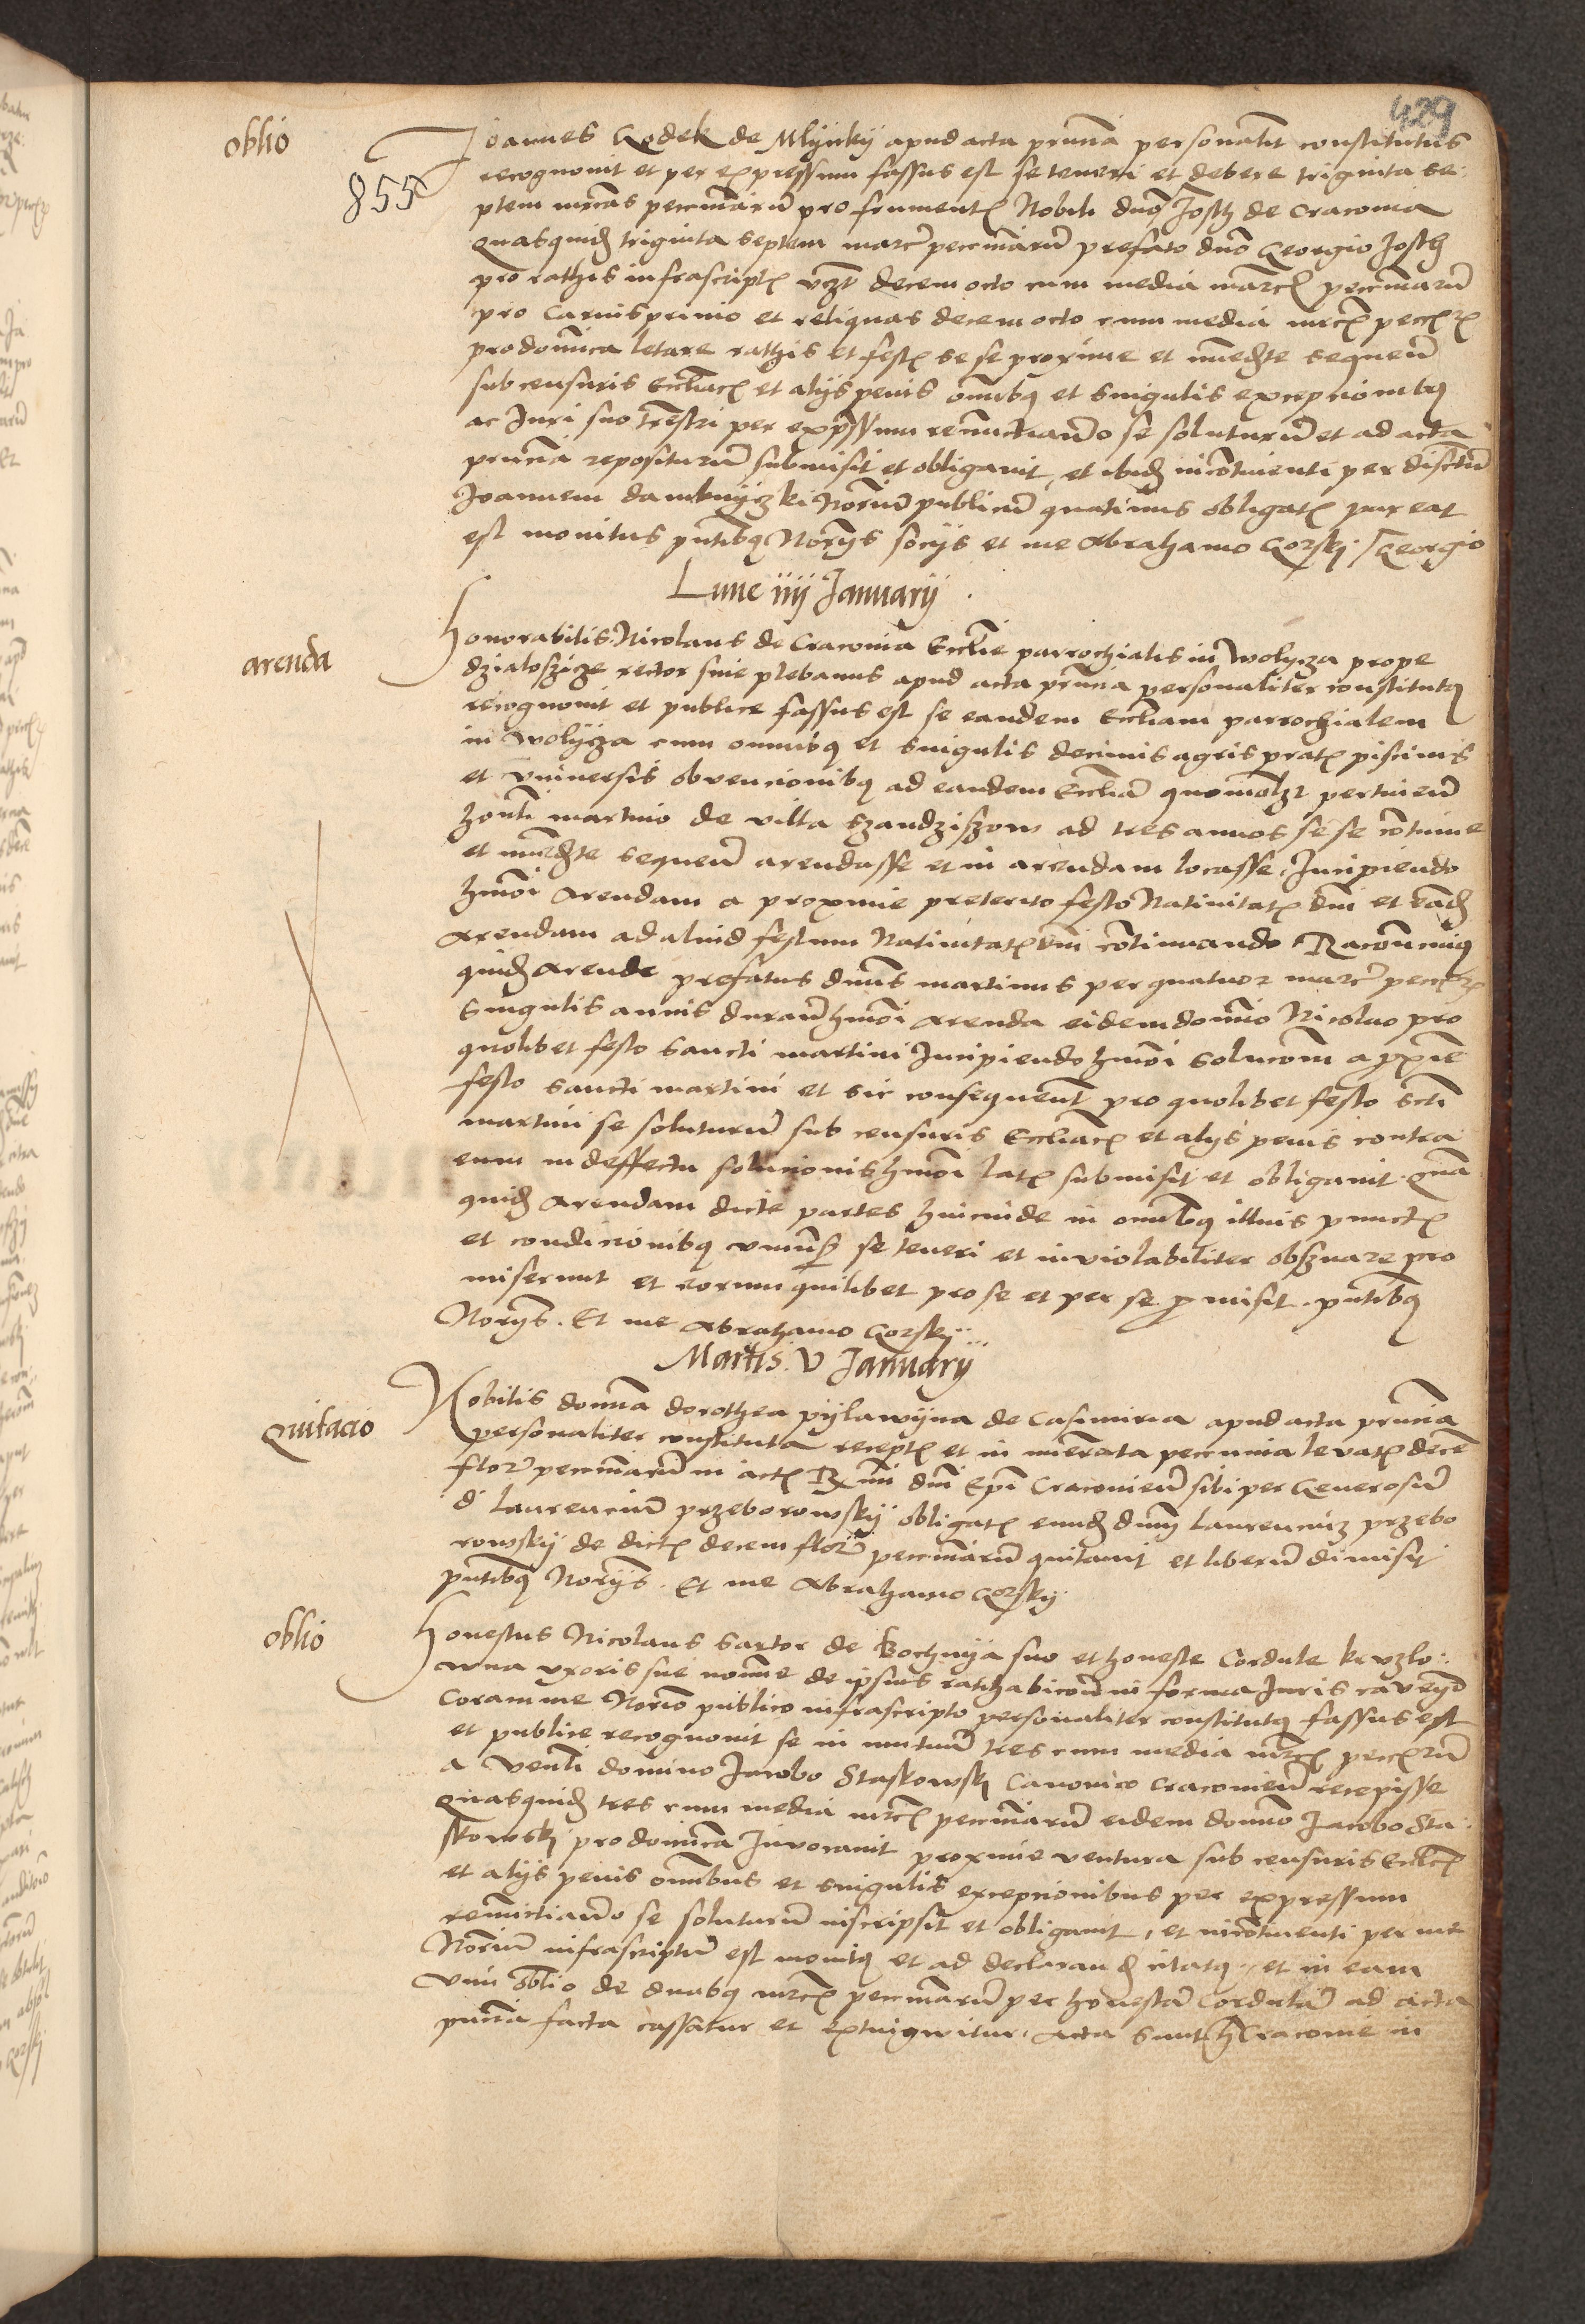 429
oblio
855
Joannes Godek de Mlynky apud acta prnna personalit constitutus
recognouit et per expressum fassus est se teneri et debere triginta se
ptem mrcas pecuniaru pro frument Nobili dno Josth de Craconia
quasquid triginta septem marc pecuniaru prefato dno Georgio Josth
pro rathis infrascript vzt decem octo cum media marc pecuniaru
pro Carnisprinio et reliquas decem octo cum media mrc pecc
pro domica letare rathis et fest se se proxime et imediate sequen
sub censuris Eccliac et alijs penis omibq et singulis excepcionibq
ac Juri suo trestri per expssum renuctiando se soluturu et ad acta
prnna repositurum submisit et obligauit, et ibid incotinenti per discetu
Joannem dambnyczki Noriu publicu quatinus obligat pareat
est monitus pntibq Norijs socijs et me Abrahamo Gorskj / Georgio
Lune iiij Januarij
arenda
honorabilis Nicolaus de Craconia Ecclie parrochialis in Wolycza prope
dzialoszicze rector siue plebanus apud acta prnna personaliter constitutq
recognouit et publice fassus est se eandem Eccliam parrochialem
in Wolycza cum omnibq et singulis decimis agris prat piscinis
et vniuersis obuencionibq ad eandem Eccliam quomolzt pertinen
honli martino de villa Szandziszow ad tres annos se se cotinue
et imediate sequen arendasse et in arendam locasse, Incipiendo
hmoi arendam a proxime preterito festo Natiuitat dni et ead
arendam ad aliud festum Natiuitat dni cotinuando Racone cuiq
quid arende prefatus dnus martinus per quatuor marc pecc
singulis annis duran hmoi arenda eidem domino Nicolao pro
quolibet festo sancti martini Incipiendo hmoi solucom a pxie
festo sancti martini et sic consequent pro quolibet festo scti
martini se soluturu sub censuris Eccliac et alijs penis contra
eum in deffectu solucionis hmoi lat submisit et obligauit quam
quid arendam dicte partes hincinde in omibq illius punct
et condicionibq se teneri et inuiolabiliter obseruare pro
miserunt et eorum quilibet pro se et per se pmisit pntibq
Norijs. Et me Abrahamo Gorskij
Martis V Januarij
Quitacio
Nobilis domna dorothea pylawyna de Casimiria apud acta prnnia
personaliter constituta recept et in nuerata peccunia leuat dece
flor pecuniaru in act Rmi dni Epi Craconien sibi per Generosu
d laurenciu przeborowskij obligat eund dnum laurenciu przebo
rowskij de dict decem flor pecuniaru quitauit et liberu dimisit
pntibq Norijs. Et me Abrahamo Gorskij
oblio
honestus Nicolaus Sartor de Bochnya suo et honeste Cordule kruzlo
wna vxoris sue nomie de ipsius rathabicone in forma Juris caueyd
Coram me Norio publico infrascripto personaliter constitutq fassus est
et publice recognouit se in mutuu tres cum media mrc pecc
a Venli domino Jacobo Staskowskj Canonico Craconien recepisse
Quasquid tres cum media mrc pecuniaru eidem domno Jacobo Sta
skowskj pro domica Inuocauit proxime ventura sub censuris Ecclic
et alijs penis omibus et singulis excepcionibus per expressum
renuctiando se soluturu inscripsit et obligauit, et incotinenti per me
Noriu infrascriptu est monitq et ad declarand citatq, et in eam
vim oblio de duabq mrc pecuniaru per honesta Cordula ad acta
prnna facta cassatur et extingwitur, Acta sunt h Craconie in